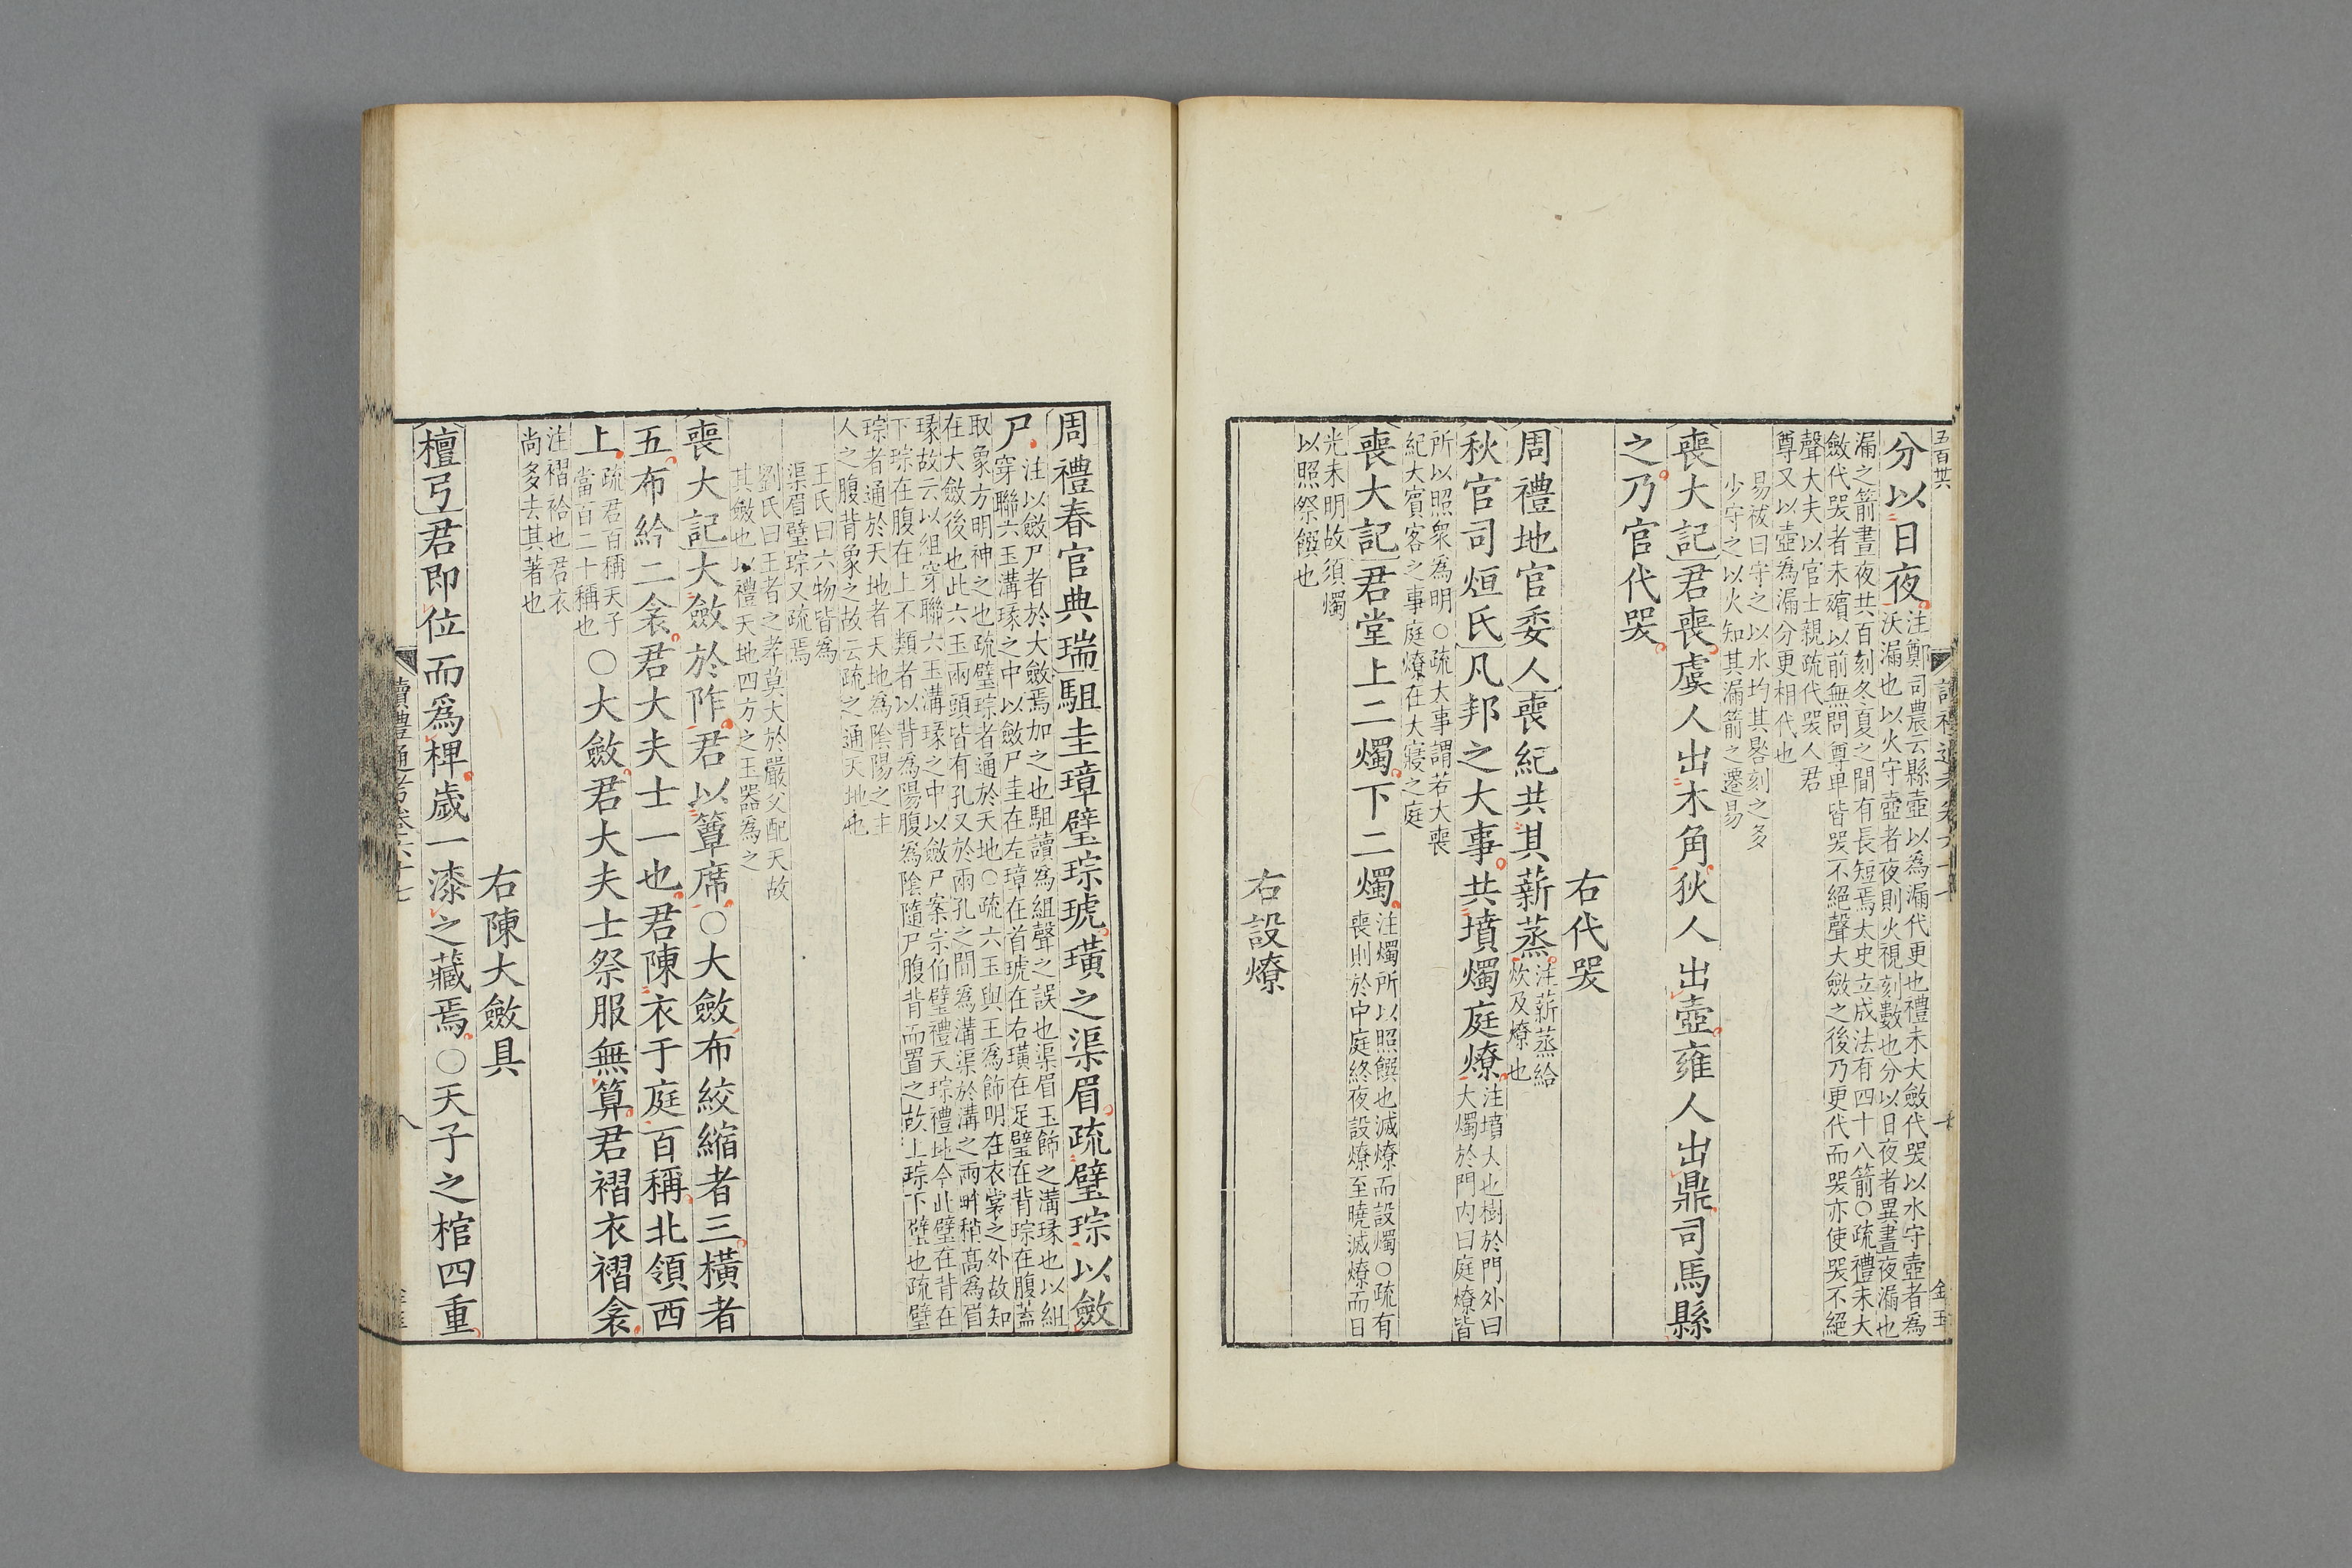 五百廿
分以日夜注鄭司農云縣壺以為漏代更也禮未大斂代哭以水守壺者為
沃漏也以火守壺者夜則火視刻數也分以日夜者異晝夜漏也
漏之箭晝夜共百刻冬夏之間有長短焉太史立成法有四十八箭○疏禮未大
斂代哭者未殯以前無問尊卑皆哭不絕聲大斂之後乃更代而哭亦使哭不絕
聲大夫以官士親疏代哭人君
尊又以壺為漏分更相代也
易祓曰守之以水均其晷刻之多
少守之以火知其漏箭之遷易
喪大記君喪虞人出木角狄人出壺雍人出鼎司馬縣
之乃官代哭
右代哭
周禮地官委人喪紀共其薪蒸注薪蒸給
炊及燎也
秋官司烜氏凡邦之大事共墳燭庭燎注墳大也樹於門外曰
大燭於門內曰庭燎皆
所以照衆為明○疏大事謂若大喪
紀大賓客之事庭燎在大寢之庭
喪大記君堂上二燭下二燭注燭所以照饌也滅燎而設燭○疏有
喪則於中庭終夜設燎至曉滅燎而日
光未明故須燭
以照祭饌也
右設燎
周禮春官典瑞駔圭璋璧琮琥璜之渠眉疏璧琮以斂
尸注以斂尸者於大斂焉加之也駔讀為組聲之誤也渠眉玉飾之溝瑑也以組
穿聯六玉溝瑑之中以斂尸圭在左璋在首琥在右璜在足璧在背琮在腹蓋
取象方明神之也疏璧琮者通於天地○疏六玉與王為飾明在衣裳之外故知
在大斂後也此六玉兩頭皆有孔又於兩孔之間為溝渠於溝之兩畔稍高為眉
瑑故云以組穿聯六玉溝瑑之中以斂尸案宗伯璧禮天琮禮地今此璧在背在
下琮在腹在上不類者以背為陽腹為陰隨尸腹背而置之故上琮下璧也疏璧
琮者通於天地者天地為陰陽之主
人之腹背象之故云疏之通天地也
王氏曰六物皆為
渠眉璧琮又疏焉
劉氏曰王者之孝莫大於嚴父配天故
其斂也以禮天地四方之玉器為之
喪大記大斂於阼君以簟席○大斂布絞縮者三橫者
五布紟二衾君大夫士一也君陳衣于庭百稱北領西
上疏君百稱天子
當百二十稱也○大斂君大夫士祭服無算君褶衣褶衾
注褶袷也君衣
尚多去其著也
右陳大斂具
檀弓君即位而爲椑歲一漆之藏焉○天子之棺四重
讀禮通考卷六十七
八